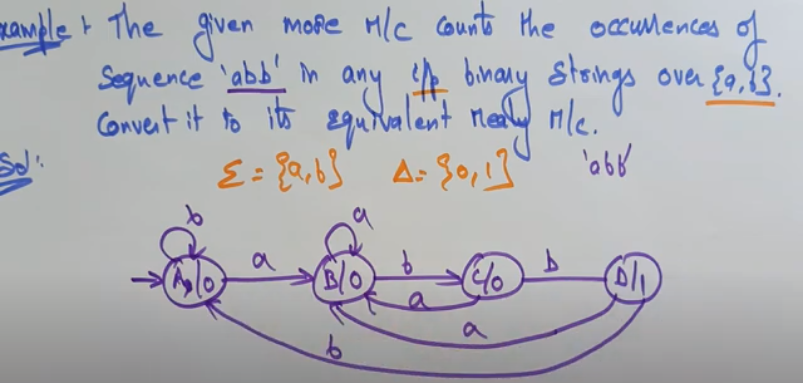 xample: The given more M/c counts the occurrences of
Sequence 'abb' in any i/p binary strings over {a,b}.
Convert it to its equivalent mealy M/c.
Sol:
Σ = {a,b} Δ = {0,1} 'abb'
b a
A/0 a B/0 b C/0 b D/1
a
a
b